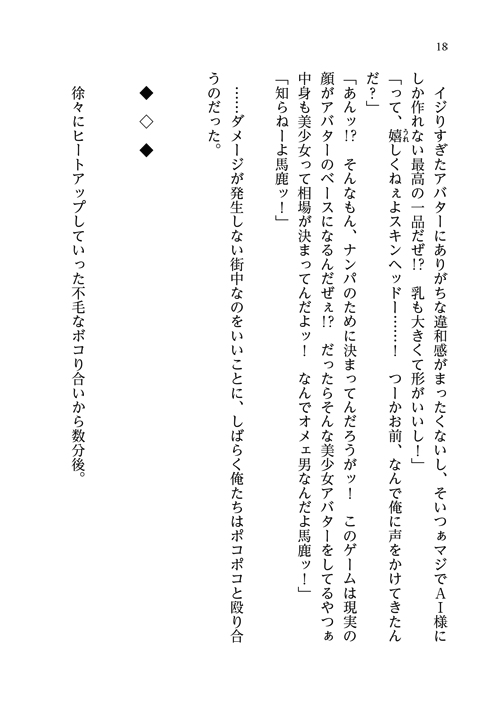 18
イジりすぎたアバターにありがちな違和感がまったくないし、そいつぁマジでＡＩ様に
しか作れない最高の一品だぜ!?　乳も大きくて形がいいし！」
「って、嬉しくねぇよスキンヘッドー……！　つーかお前、なんで俺に声をかけてきたん
うれ
だ？」
「あんッ!?　そんなもん、ナンパのために決まってんだろうがッ！　このゲームは現実の
顔がアバターのベースになるんだぜぇ!?　だったらそんな美少女アバターをしてるやつぁ
中身も美少女って相場が決まってんだよッ！　なんでオメェ男なんだよ馬鹿ッ！」
「知らねーよ馬鹿ッ！」
……ダメージが発生しない街中なのをいいことに、しばらく俺たちはポコポコと殴り合
うのだった。
◆　◇　◆
徐々にヒートアップしていった不毛なボコり合いから数分後。